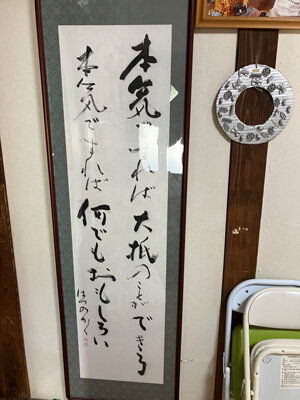 本気ですれば大抵のことができる
本気ですれば何でもおもしろい